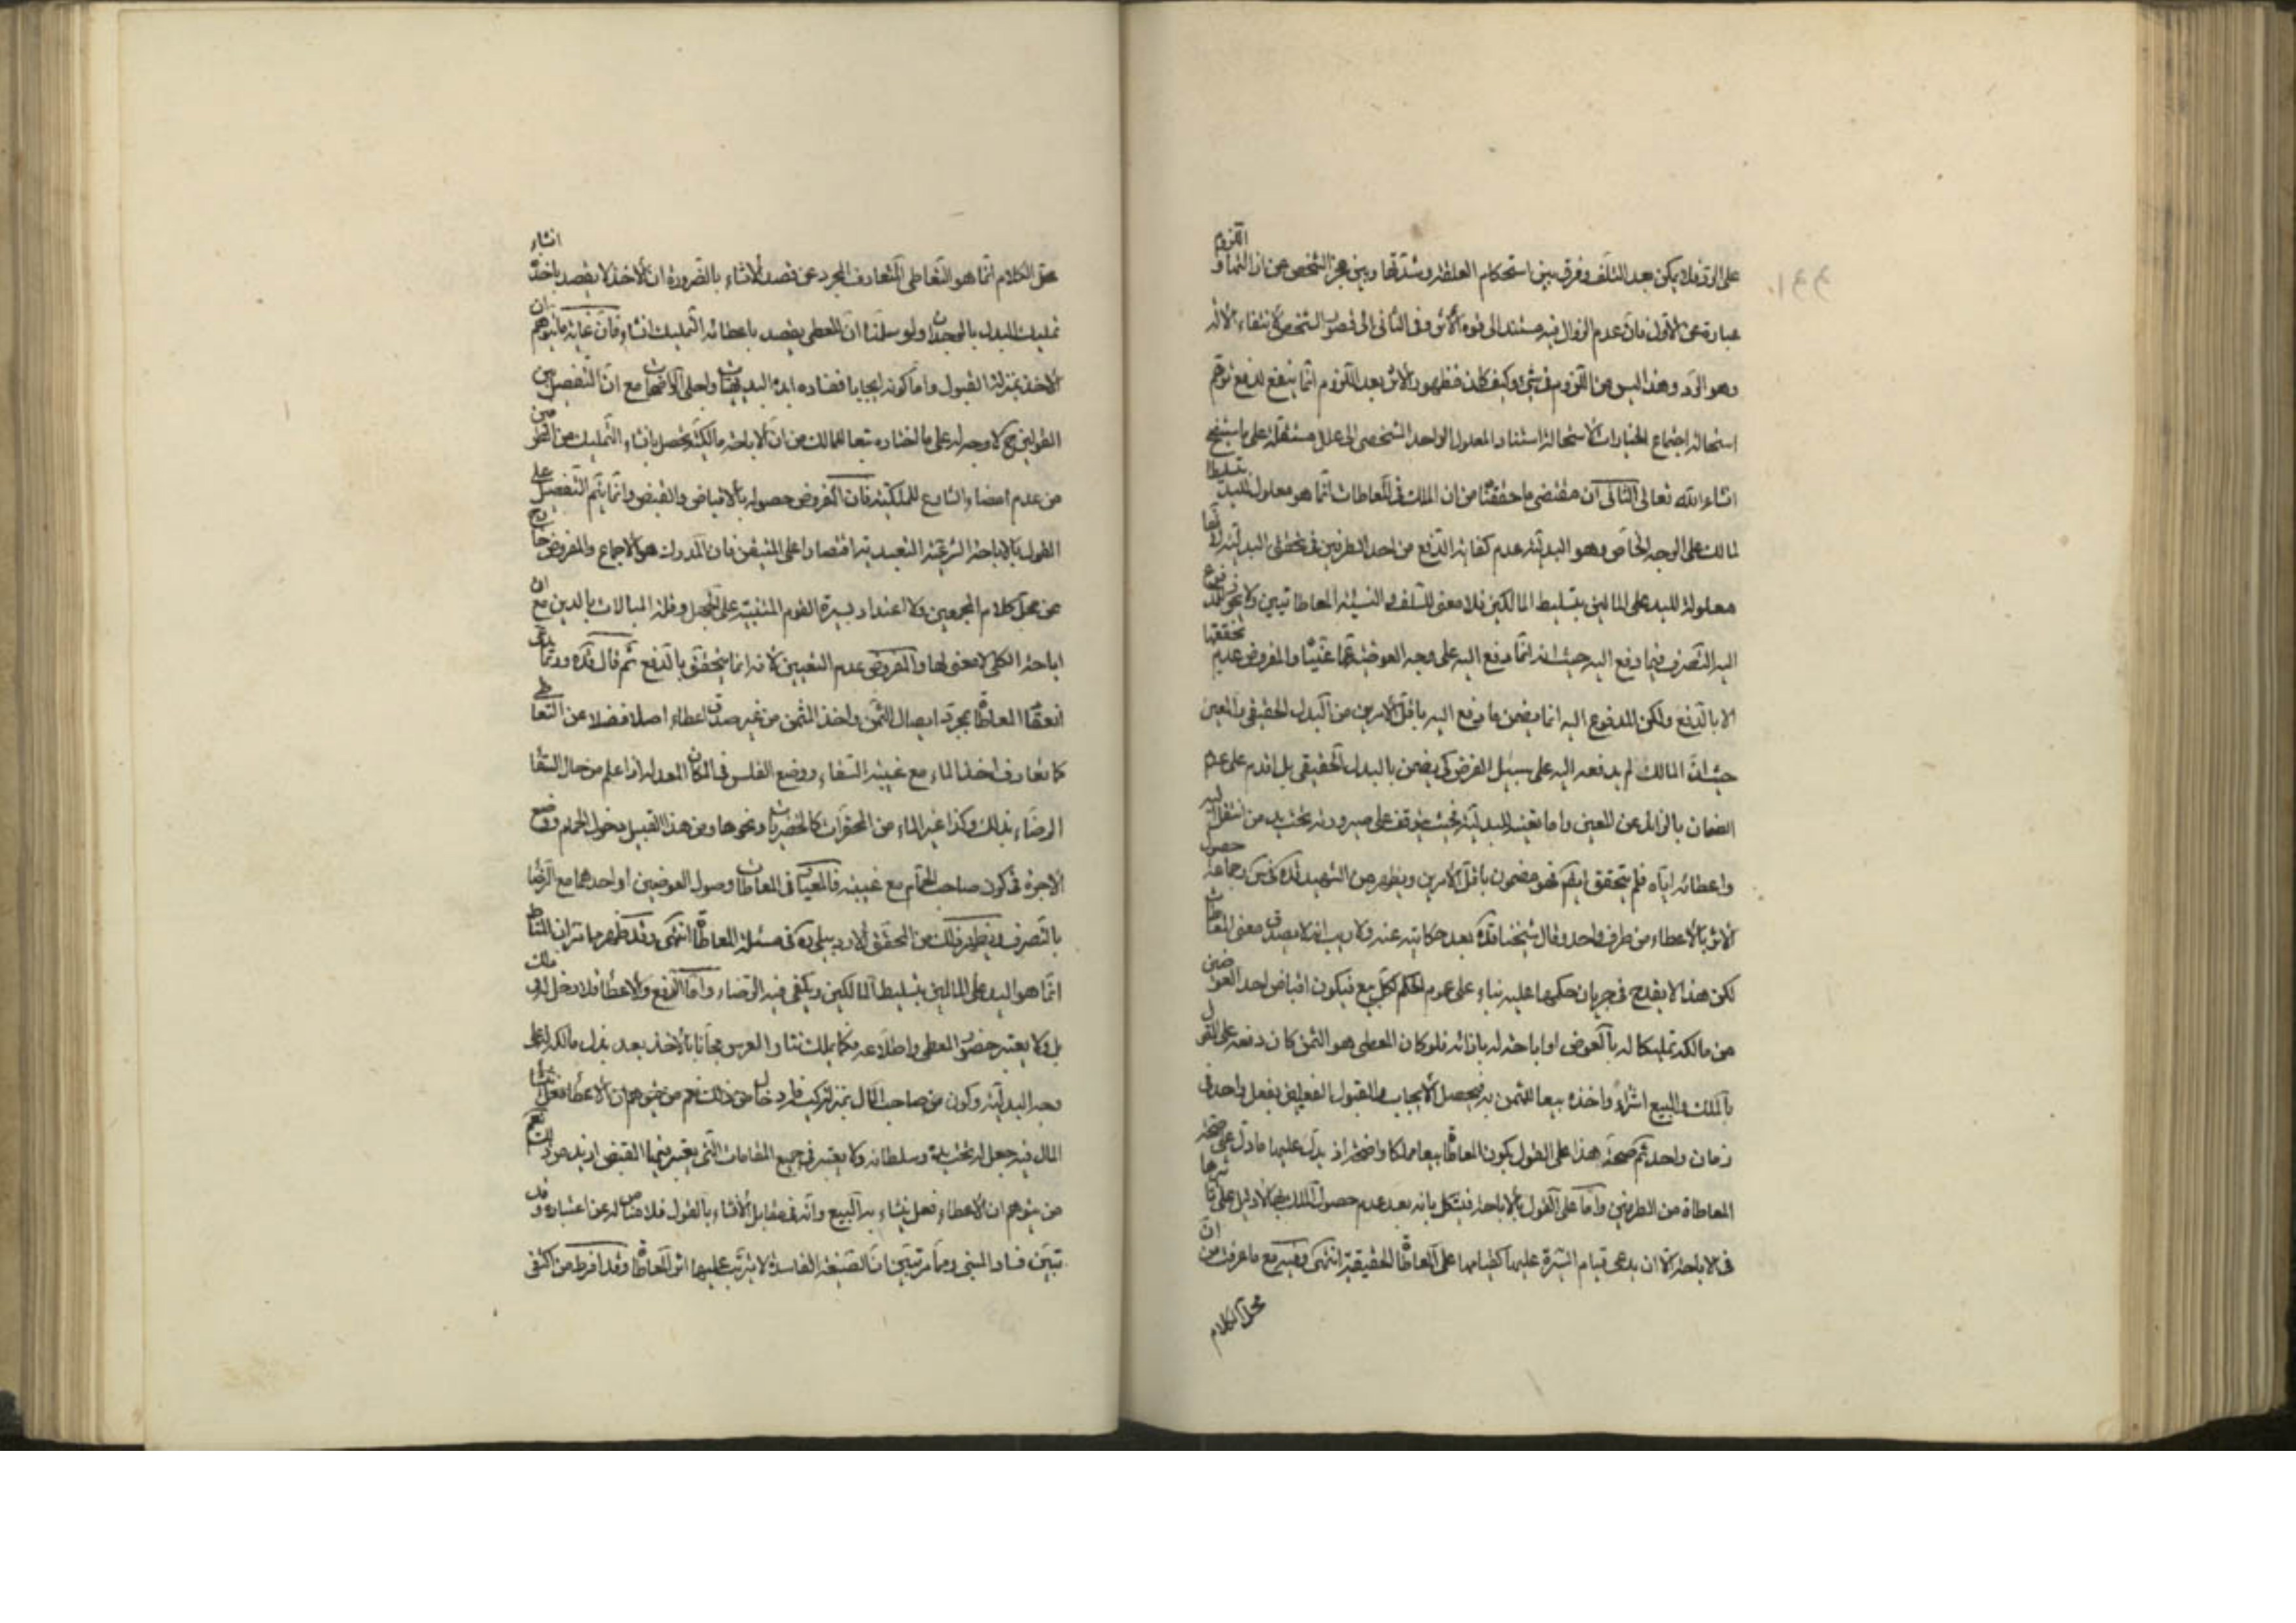 على الرد فلا يمكن بعد التلف وفرق بين استحكام العلقة وشدتها وبين عجز الشخص عن ازالتها واللزوم
عبارة عن الاول فان عدم الزوال فيه مستند الى قوة الاثر وفى الثانى الى قصور الشخص لانتفاء الآلة
وهو الرد وهذا ليس من اللزوم فى شئ وكيف كان فظهور الاثر بعد اللزوم انما ينفع لدفع توهم
استحالة اجتماع الخيارات لاستحالة استناد المعلول الواحد الشخصى الى علل مستقلة على ما سيتضح
انشاء الله تعالى الثانى ان مقتضى ما حققنا من ان الملك فى المعاطات انما هو معلول لليد بتسليط
المالك على الوجه الخاص وهو البدلية عدم كفاية الدفع من احد الطرفين فى تحقق البدلية لانها
معلولة لليد على المالين بتسليط المالكين فلا معنى للسلف والنسيئة المعاطاتيين ولا يجوز للمدفوع
اليه التصرف فيما دفع اليه حيث انه انما دفع اليه على وجه العوضية عما عيّنا والمفروض عدم تحققها
الا بالدفع ولكن المدفوع اليه انما يضمن ما دفع اليه باقل الامرين من البدل الحقيقى والمعين
حيث ان المالك لم يدفعه اليه على سبيل القرض كى يضمن بالبدل الحقيقى بل اقدم على عدم
الضمان بالزائد عن المعين واما تعينه للبدلية فحيث يتوقف على صيرورته تحت يد من انتقل اليه
واعطائه اياه فلم يتحقق ايضا فهو مضمون باقل الامرين ويظهر من الشهيد قده فى س وجماعة حصول
الاثر بالاعطاء من طرف واحد وقال شيخنا قده بعد حكايته عنه ولا ريب انه لا يصدق معنى المعاطات
لكن هذا لا يقدح فى جريان حكمها عليه بناء على عموم الحكم لكل بيع فيكون اقباض احد العوضين
من مالكه تمليكا له بالعوض او اباحة له بازائه فلو كان المعطى هو الثمن كان دفعه على القول
بالملك والبيع اشتراء واخذه بيعا للثمن به فيحصل الايجاب والقبول الفعليين بفعل واحد فى
زمان واحد ثم صحة هذا على القول بكون المعاطاة بيعا مملكا واضحة اذ يدل عليها ما دل على صحة
المعاطاة من الطرفين واما على القول بالاباحة فيشكل بانه بعد عدم حصول الملك بها لا دليل على تاثيرها
فى الاباحة الا ان يدعى قيام السيرة عليها كقيامها على المعاطاة الحقيقية انتهى وفيه مع ما عرفت من ان
محل الكلام
محل الكلام انما هو التعاطى المتعارف المجرد عن قصد الانشاء بالضرورة ان الاخذ لا يقصد باخذه انشاء
تمليك البدل بالوجدان ولو سلمنا ان المعطى يقصد باعطائه التمليك انشاء فان غاية ما يتوهم ان
الاخذ بمنزلة القبول واما كونه ايجابا ففساده ابده البديهيات واجلى الواضحات مع ان التفصيل بين
القولين ح لا وجه له على ما اختاره تبعا للمالك من ان الاباحة مالكية يحصل بانشاء التمليك مع قطع النظر
من عدم امضاء الشارع للملكية فان المفروض حصوله بالاقباض والقبض وانما يتم التفصيل على
القول بالاباحة الشرعية التعبدية اقتصارا على المتيقن فان المدرك هو الاجماع والمفروض خارج
عن محل كلام المجمعين ولا اعتداد بسيرة القوم المنبئية على الجهل وقلة المبالات بالدين مع ان
اباحة الكلى لا معنى لها والمفروض عدم التعيين لانه انما يتحقق بالدفع ثم قال قده وربما يدعى
انعقاد المعاطاة بمجرد ايصال الثمن واخذ المثمن من غير صدق اعطاء اصلا فضلا عن التعاطى
كما تعارف اخذ الماء مع غيبة السقاء ووضع الفلس فى المكان المعد له اذا علم من حال السقا
الرضاء بذلك وكذا غير الماء من المحقرات كالخضريات ونحوها ومن هذا القبيل دخول الحمام ووضع
الاجرة فى كون صاحب الحمام مع غيبته فالمعيار فى المعاطات وصول العوضين او احدهما مع الرضا
بالتصرف ويظهر ذلك من المحقق الاردبيلى ره فى مسئلة المعاطاة انتهى وقد ظهر مما مر ان المناط
انما هو اليد على المالين بتسليط المالكين ويكفى فيه الرضاء واما الدفع والاعطاء فلا دخل له
بل ولا يعتبر حضور المعطى واطلاعه فكما يملك نثار العرس مجانا بالاخذ بعد بذل مالكه له على
وجه البدلية وكون من صاحب المال بمنزلة كيف خاص ذلك نعم من يتوهم ان الاعطاء فعل
المال فيه جعل له تحت يده وسلطانه ولا يعتبر فى جميع المقامات التى يعتبر فيها القبض ازيد من ذلك نعم
من يتوهم ان الاعطاء فعل ينشاء به البيع وانه فى مقابل الانشاء بالقول فلا مناص له عن اعتباره وقد
تبين فساد المبنى ومما مر تبين ان الصيغة الفاسدة لا يترتب عليها اثر المعاطاة وقد افرط من اكتفى